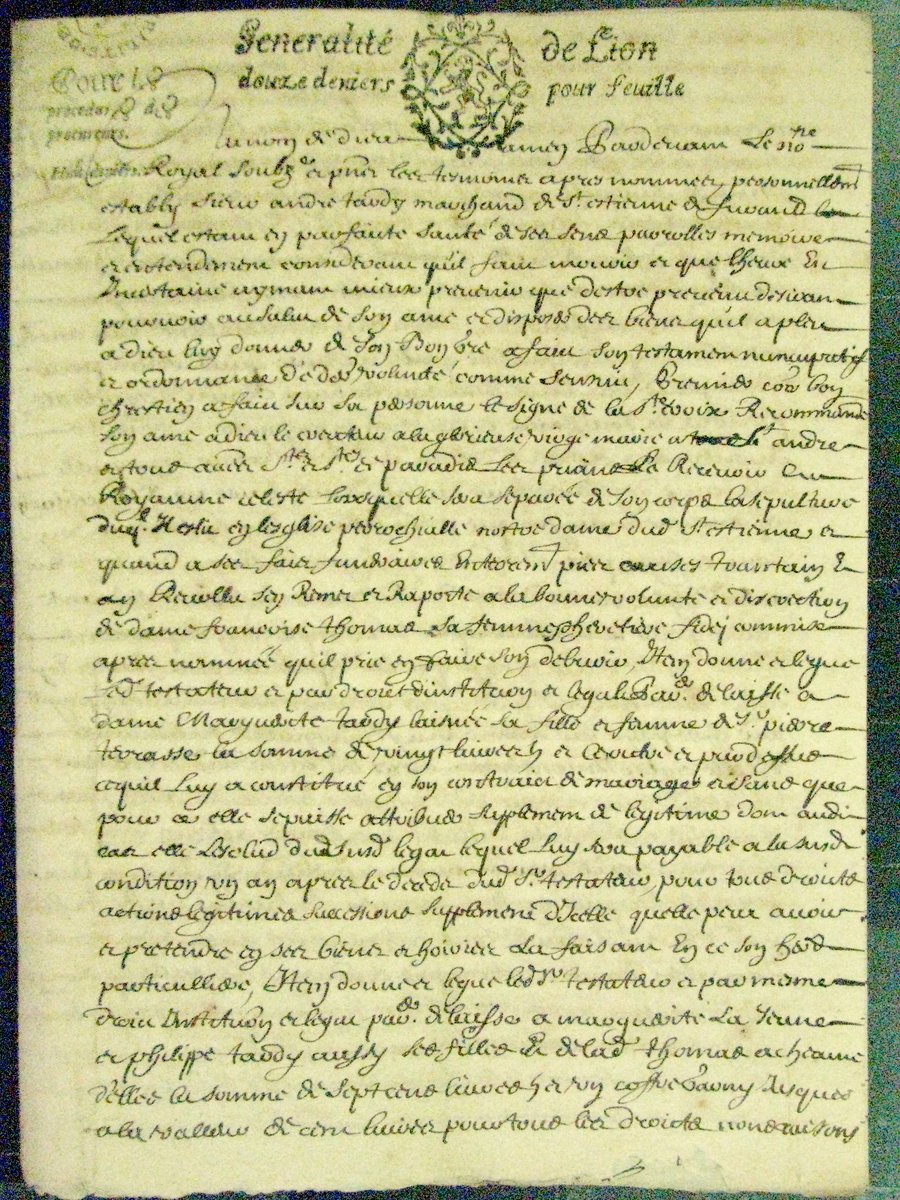 Generalité de Lion
douze deniers pour feuille
Pour les
procedures des
procureurs.
Au nom de dieu amen Pardevant Le no.re
Royal soubz.é et pnts les tesmoins apres nommes, personnellem.t
estably sieur andre tardy marchand de S.t estienne de furand
Lequel estant en parfaite santé de ses sens parrolles memoire
et entendement considerant quil faut mourir et que lheure En
Incertaine aymant mieux prevenir que destre prevenu desirant
pourvoir au salut de son ame et disposer des biens quil a pleu
a dieu luy donner de son Bon gré a fait son testament nuncupatif
et ordonnance de der.e volunté comme sensuit, Premier co.e bon
chrestien a fait sur sa personne le signe de la S.te croix Recommandé
son ame a dieu le createur a la glorieuse vierge marie a S.t andre
et tous autres S.ts et S.tes de paradis Les priant Le Recevoir au
Royaume celeste lorsquelle sera separée de son corps la sepulture
duq.l Il eslit en lesglise parrochialle nostre dame dud S.t estienne et
quand a ses frais funeraires Enterrem.t pies causes trantain Et
an Revollu sen Remet et Raporte a la bonne volunté et discretion
de dame francoise thomas sa femme sheretiere fidei commise
apres nommée quil prie en faire son debvoir, Item donne et legue
led testateur et par droit dinstitution et legat Par.er delaisse a
dame Marguerite tardy laisnée sa fille et femme de S.r pierre
terrasse la somme de vingt livres et ce outre et par dessus
ce quil Luy a constitué en son contrait de mariage et sans que
pour ce elle se puisse attribuer supplement de legitime dont audit
cas elle Lexclud dud susd legat lequel Luy sera payable a la susd
condition un an apres le deces dud S.r testateur, pour tous droits
actions legitimes successions supplement dIcelle quelle peut avoir
et pretendre en ses biens et hoiries La faisant En ce son here
particulliere, Item donne et legue led S.r testateur et par mesme
droit Institution et legat par.er delaisse a marguerite La Jeune
et philippe tardy aussy ses filles Et de lad thomas a cheacune
delles la somme de sept cens livres et un coffre garny Jusques
a la valleur de cent livres pour tous les droicts noms raisons